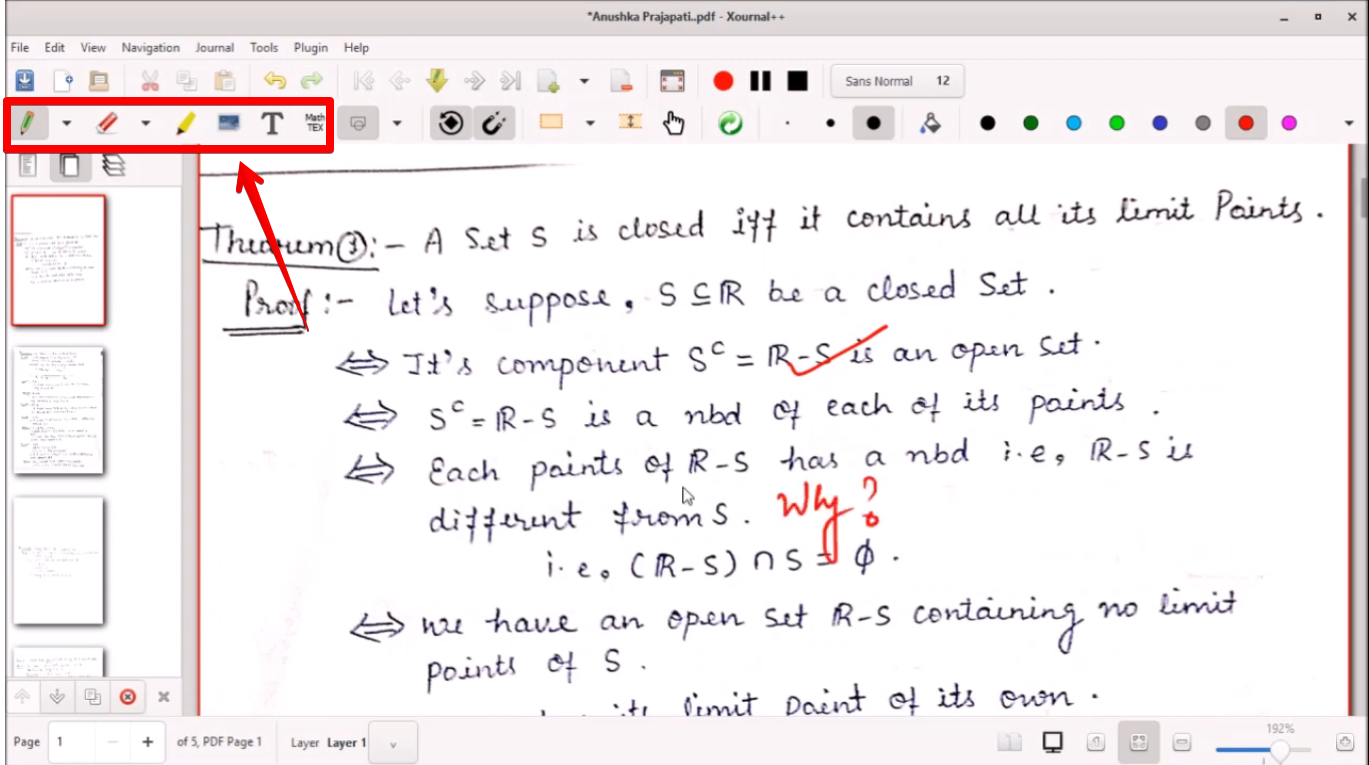 *Anushka Prajapati..pdf - Xournal++
File Edit View Navigation Journal Tools Plugin Help
Sans Normal 12
T Math TEX
Theorem ①:- A Set S is closed iff it contains all its limit Points.
Proof :- Let's suppose, S ⊆ ℝ be a closed Set.
⇔ It's component Sᶜ = ℝ-S is an open set.
⇔ Sᶜ = ℝ-S is a nbd of each of its points.
⇔ Each points of ℝ-S has a nbd i.e, ℝ-S is
different from S. Why?
i.e, (ℝ-S) ∩ S = ϕ.
⇔ we have an open set ℝ-S containing no limit
points of S.
its limit point of its own.
Page 1 - + of 5, PDF Page 1 Layer Layer 1 v 192%